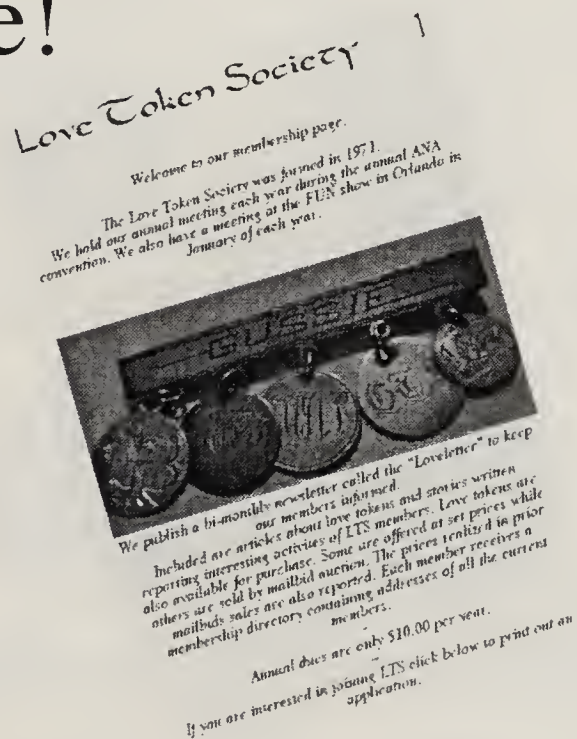 e!
1
Love Token Society
Welcome to our membership page.
The Love Token Society was formed in 1971.
We hold our annual meeting each year during the annual ANA
convention. We also have a meeting at the FUN show in Orlando in
January of each year.
GUSSIE
We publish a bi-monthly newsletter called the "Loveletter" to keep
our members informed.
Included are articles about love tokens and stories written
reporting interesting activities of LTS members. Love tokens are
also available for purchase. Some are offered at set prices while
others are sold by mailbid auction. The prices realized in prior
mailbids sales are also reported. Each member receives a
membership directory containing addresses of all the current
members.
Annual dues are only $10.00 per year.
If you are interested in joining LTS click below to print out an
application.